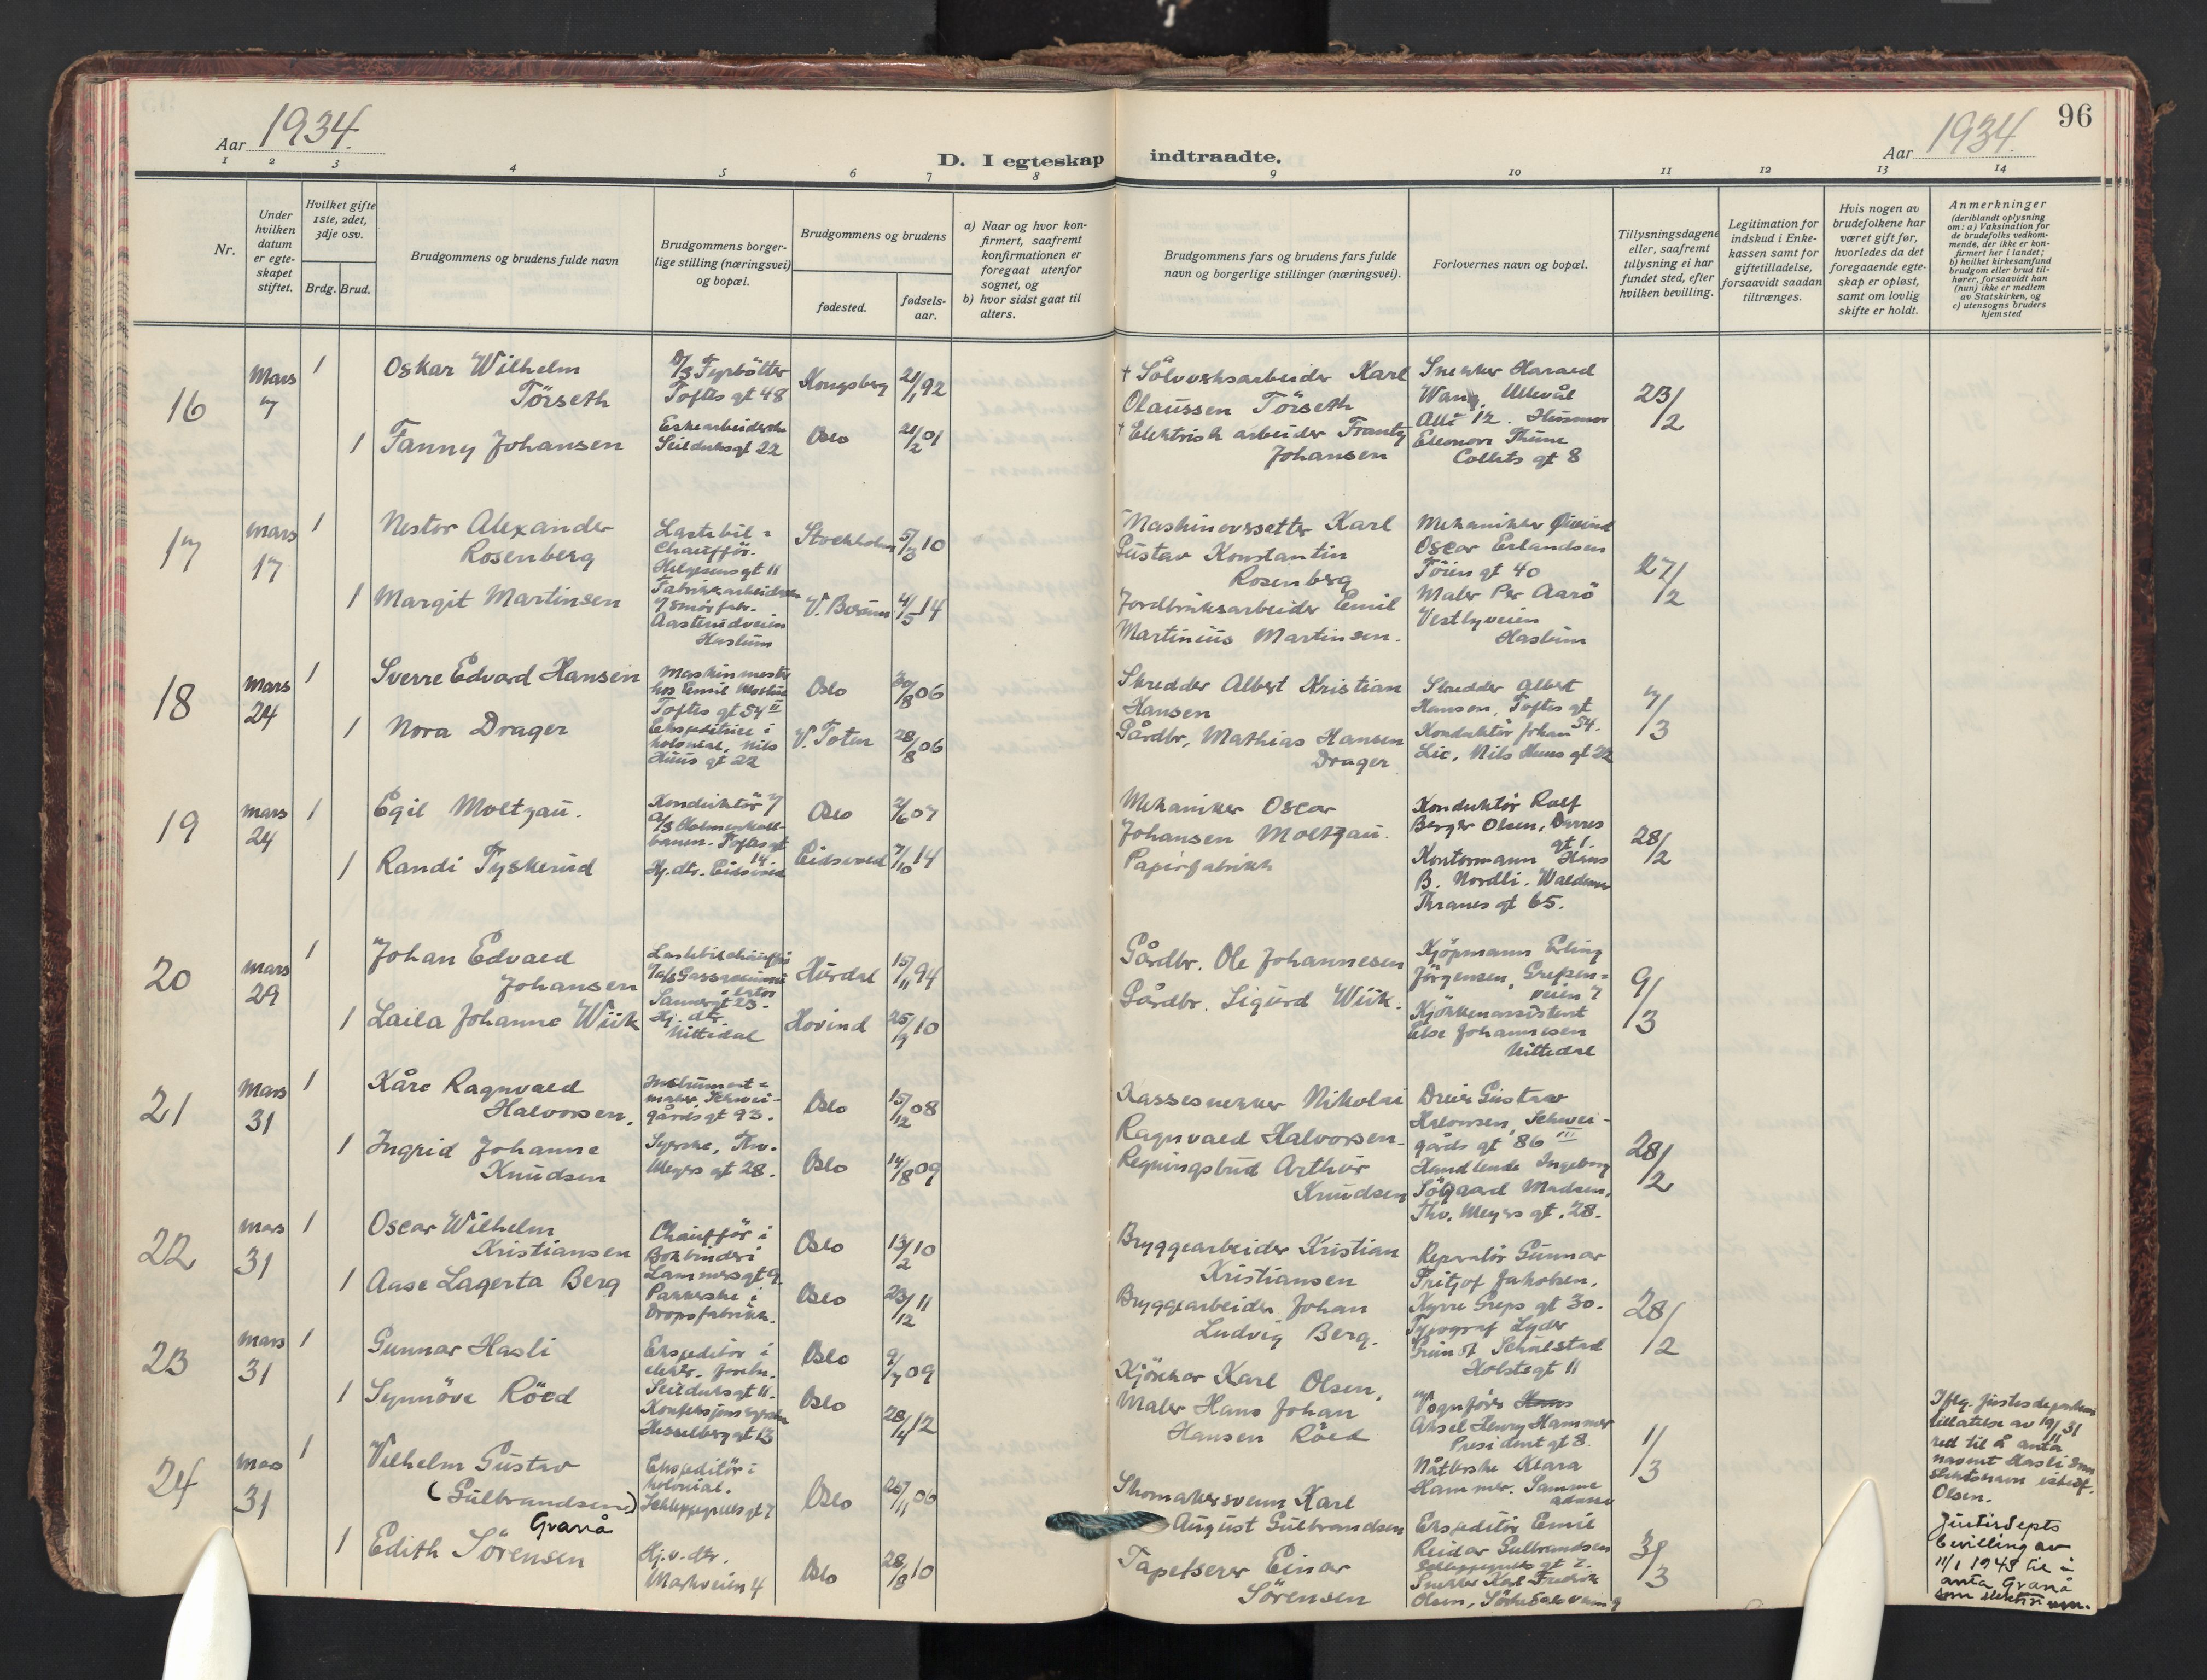 96
Aar 1934.
Aar 1934.
D. I egteskap indtraadte.
1 2 3 4 5 6 7 8 9 10 11 12 13 14
Nr.
Under hvilken datum er egte- skapet stiftet.
Hvilket gifte 1ste, 2det, 3dje osv.
Brdg. Brud.
Brudgommens og brudens fulde navn
Brudgommens borger- lige stilling (næringsvei) og bopæl.
Brudgommens og brudens
fødested.
fødsels- aar.
a) Naar og hvor kon- firmert, saafremt konfirmationen er foregaat utenfor sognet, og
b) hvor sidst gaat til alters.
Brudgommens fars og brudens fars fulde navn og borgerlige stillinger (næringsvei).
Forlovernes navn og bopæl.
Tillysningsdagene eller, saafremt tillysning ei har fundet sted, efter hvilken bevilling.
Legitimation for indskud i Enke- kassen samt for giftetilladelse, forsaavidt saadan tiltrænges.
Hvis nogen av brudefolkene har været gift før, hvorledes da det foregaaende egte- skap er opløst, samt om lovlig skifte er holdt.
Anmerkninger
(deriblandt oplysning om: a) Vaksination for de brudefolks vedkom- mende, der ikke er kon- firmert her i landet; b) hvilket kirkesamfund brudgom eller brud til- hører, forsaavidt han (hun) ikke er medlem av Statskirken, og c) utensogns bruders hjemsted
16
Mars 7
1
Oskar Wilhelm
Törseth
D/S Fyrböter
Toftes gt 48
Kongsberg
21/1 92
+ Sölvverksarbeider Karl
Olaussen Törseth
Snekker Harald
Wang, Ullevål
Alle 12. Husmor
Eleonora Thune
Colletts gt 8
23/2
1
Fanny Johansen
Eskearbeiderske
Seilduksgt 22
Oslo
21/2 01
+ Elektrisk arbeider Frantz
Johansen
17
Mars 17
1
Nestor Alexander
Rosenberg
Lastebil=
chauffør.
Helgesensgt 11
Stockholm
5/3 10
Maskinovssetter Karl
Gustav Konstantin
Rosenberg
Mekaniker Øivind
Oscar Erlandsen
Töien gt 40
Maler Per Aarö
Vestlyveien
Haslum
27/2
1
Margit Martinsen
Fabrikkarbeiderske
i smörfabr.
Aasterudveien
Haslum
V. Bærum
4/5 14
Jordbruksarbeider Emil
Martinius Martinsen.
18
Mars 24
1
Sverre Edvard Hansen
Maskinmester
hos Emil
Toftes gt 54 II
Oslo
30/8 06
Skredder Albert Kristian
Hansen
Skredder Albert
Hansen, Toftes gt
54.
Konduktör Johan
Lie, Nils Huus gt 22
7/3
1
Nora Drager
Ekspeditrice i
kolonial, Nils
Huus gt 22
V. Toten
28/8 06
Gårdbr. Mathias Hansen
Drager
19
Mars 24
1
Egil Moltzau.
Konduktör v/
A/S Holmenkoll-
banen. Toftes gt
14.
Oslo
2/6 07
Mekaniker Oscar
Johansen Moltzau.
Konduktör Rolf
Berger Olsen, Darres
gt 1.
Kontormann Hans
B. Nordli. Waldemar
Thranes gt 65.
28/2
1
Randi Tyskerud
Hj. dtr. Eidsvold
Eidsvold
7/10 14
Papirfabrikk
20
Mars 29
1
Johan Edvald
Johansen
Lastebilchauffør
Sannergt 23.
Hurdal
15/11 94
Gårdbr. Ole Johannesen
Kjöpmann Erling
Jörgensen, Grefsen=
veien 7
Kjökkenassistent
Else Johannesen
Nittedal
9/3
1
Laila Johanne Wiik
Hj. dtr.
Nittedal
Hovind
25/9 10
Gårdbr. Sigurd Wiik.
21
Mars 31
1
Kåre Ragnvald
Halvorsen.
Instrument=
maker, Schwei-
gårds gt 93.
Oslo
15/12 08
Kassesnekker Nikolai
Ragnvald Halvorsen.
Dreier Gustav
Halvorsen, Schwei-
gårds gt 86 III
Handlende Ingeborg
Södgaard Madsen,
Thv. Meyers gt. 28.
28/2
1
Ingrid Johanne
Knudsen
Syerske, Thv.
Meyers gt 28.
Oslo
14/8 09
Regningsbud Arthur
Knudsen
22
Mars 31
1
Oscar Wilhelm
Kristiansen
Chauffør i
Bokbinderi
Lammersgt 9
Oslo
13/2 10
Bryggearbeider Kristian
Kristiansen
Reparatör Gunnar
Fritjof Jakobsen.
Kyrre Greps gt 30.
Typograf Lyder
Schulstad
Holstsgt 11
28/2
1
Aase Lagerta Berg
Pakkerske i
Dropsfabrikk.
Oslo
23/12 11
Bryggearbeider Johan
Ludvig Berg.
23
Mars 31
1
Gunnar Hasli
Ekspeditör i
elektr. forretn.
Seilduksgt 11.
Oslo
9/7 09
Kjörekar Karl Olsen.
Vognfører Hans
Aksel Henry Hammer
President gt 8.
Nåtlerske Klara
Hammer. Samme
adresse
1/3
Iflg. Justisdepartem.
tillatelse av 19/11 31
rett til å anta
navnet Hasli som
slektsnavn istedf.
Olsen.
1
Synnöve Röed
Konfeksjonssyerske
Hesselberg gt 13
Oslo
28/4 12
Maler Hans Johan
Hansen Röed
24
Mars 31
1
Vilhelm Gustav
(Gulbrandsen)
Granå
Ekspeditör i
kolonial.
Schleppegrells gt 7
Oslo
26/11 06
Skomakersvenn Karl
August Gulbrandsen
Ekspeditör Emil
Reidar Gulbrandsen
Schleppegrells gt 7.
Snekker Karl Fredrik
Olsen,
3/3
Justisdepts
bevilling av
11/1 1945 til å
anta Granå
som slektsnavn.
1
Edith Sörensen
Hj. v. dtr.
Markveien 4
Oslo
28/8 10
Tapetserer Einar
Sörensen